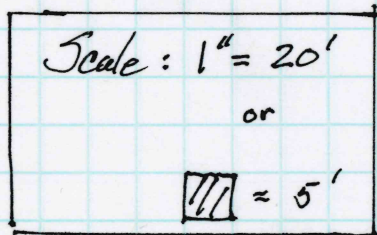 Scale: 1" = 20'
or
≈ 5'